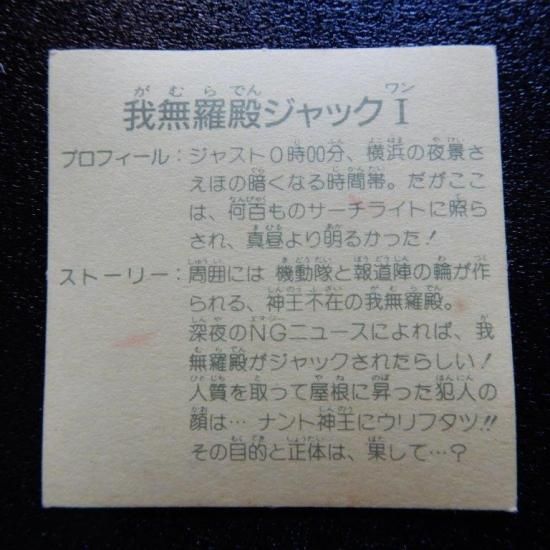 我無羅殿ジャックⅠ
プロフィール:ジャスト0時00分、横浜の夜景さ
えほの暗くなる時間帯。だがここ
は、何百ものサーチライトに照ら
され、真昼より明るかった!
ストーリー:周囲には 機動隊と報道陣の輪が作
られる、神王不在の我無羅殿。
深夜のNGニュースによれば、我
無羅殿がジャックされたらしい!
人質を取って屋根に昇った犯人の
顔は… ナント神王にウリフタツ!!
その目的と正体は、果して…?